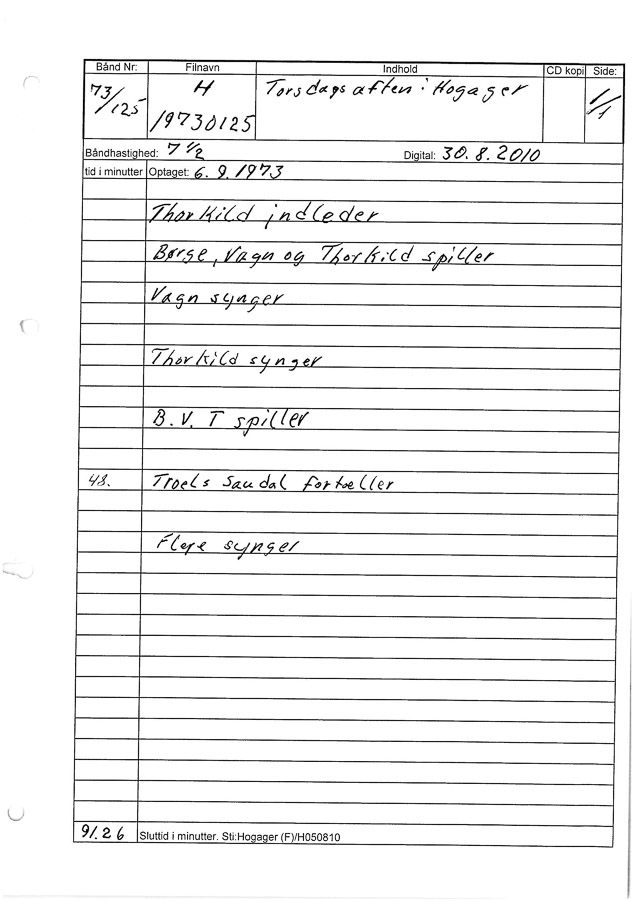 Bånd Nr: Filnavn Indhold CD kopi Side:
73/125 H 19730125 Torsdags aften i Hogager 1/1
Båndhastighed: 7 1/2 Digital: 30.8.2010
tid i minutter Optaget: 6.9.1973
Thorkild indleder
Børge, Vagn og Thorkild spiller
Vagn synger
Thorkild synger
B.V. T spiller
48. Troels Saudal fortæller
Flere synger
91.26 Sluttid i minutter. Sti:Hogager (F)/H050810